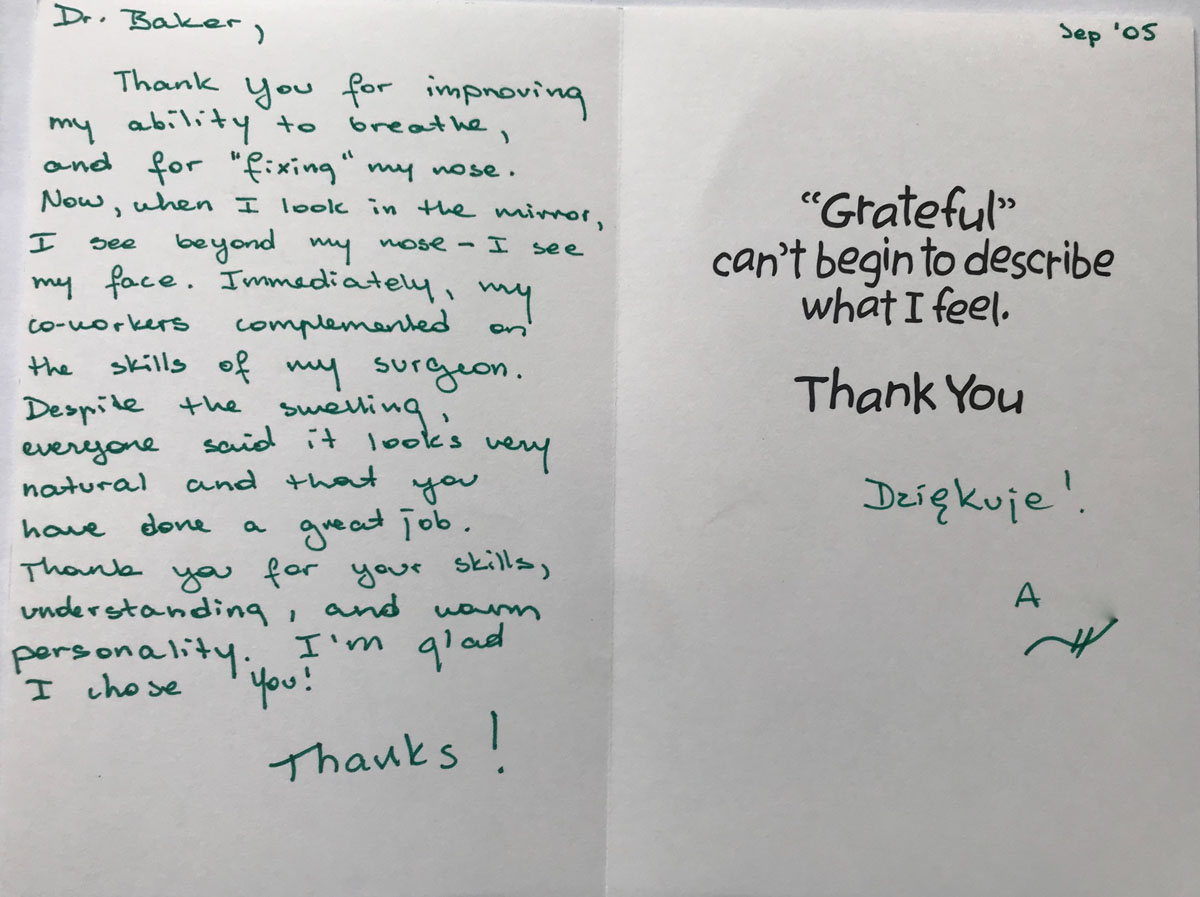 Dr. Baker,
Thank you for improving
my ability to breathe,
and for "fixing" my nose.
Now, when I look in the mirror,
I see beyond my nose - I see
my face. Immediately, my
co-workers complemented on
the skills of my surgeon.
Despite the swelling,
everyone said it looks very
natural and that you
have done a great job.
Thank you for your skills,
understanding, and warm
personality. I'm glad
I chose you!
Thanks!
Sep '05
“Grateful”
can't begin to describe
what I feel.
Thank You
Dziękuje!
A